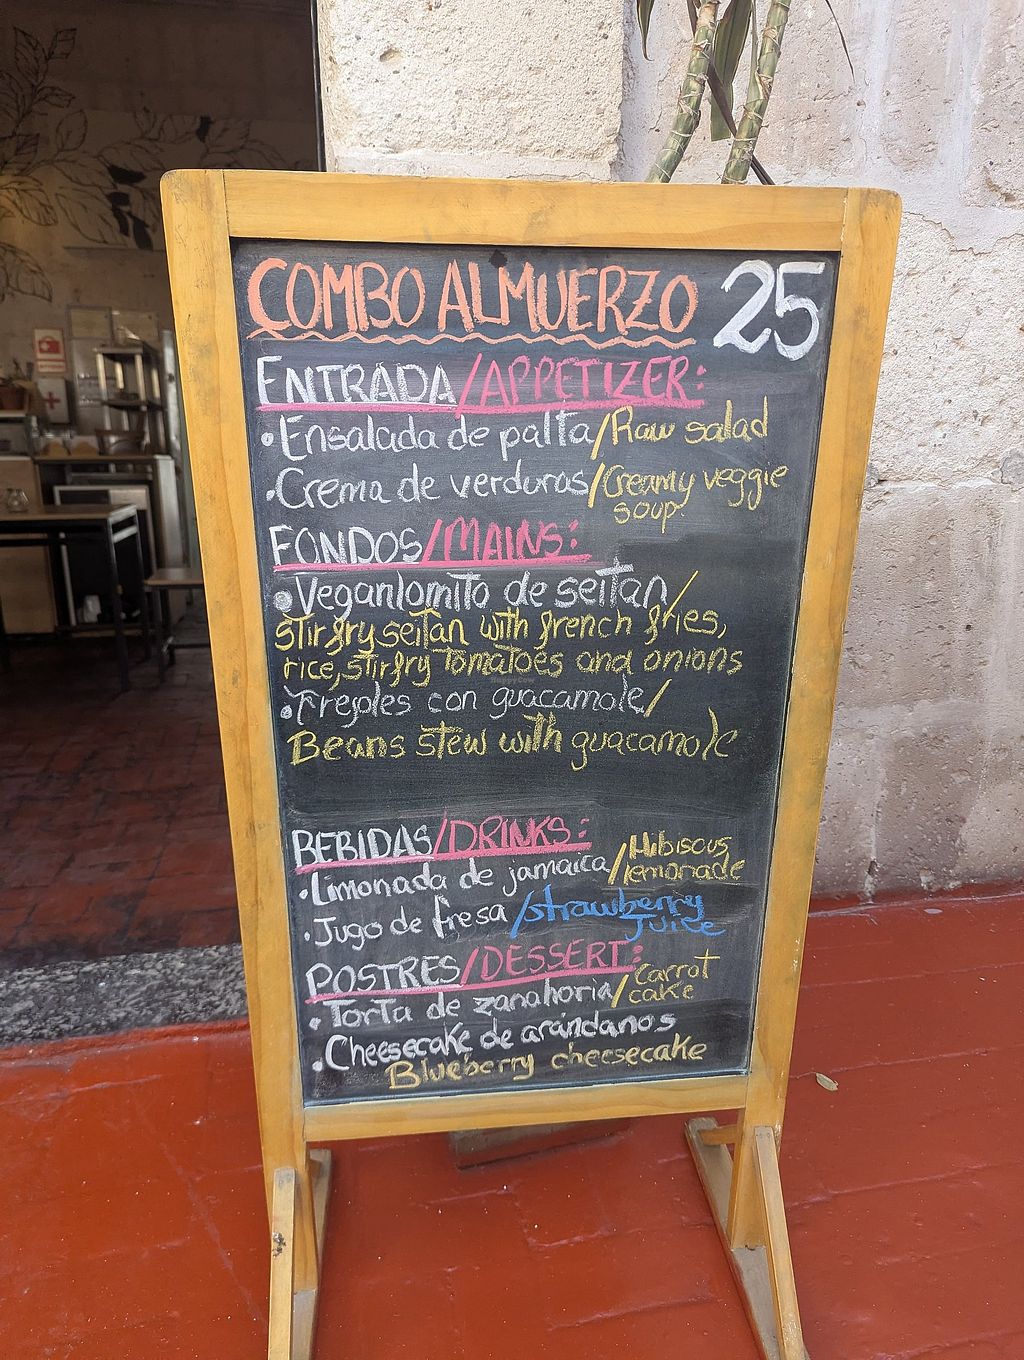 COMBO ALMUERZO 25
ENTRADA/APPETIZER:
•Ensalada de palta/Raw salad
•Crema de verduras/Creamy veggie
soup
FONDOS/MAINS:
•Veganlomito de seitan/
stirfry seitan with french fries,
rice, stirfry tomatoes and onions
•Frejoles con guacamole/
Beans stew with guacamole
BEBIDAS/DRINKS:
•Limonada de jamaica/Hibiscus
lemonade
•Jugo de fresa/strawberry
Juice
POSTRES/DESSERT:
•Torta de zanahoria/Carrot
cake
•Cheesecake de arándanos
Blueberry cheesecake
HappyCow